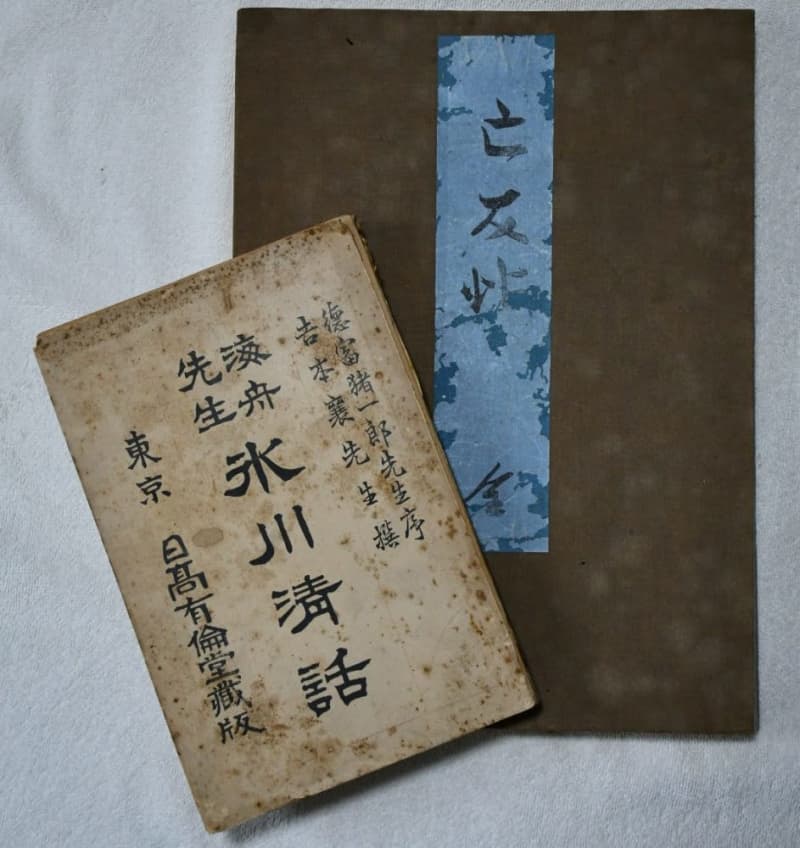 亡友帖 全
德富猪一郎先生序
吉本襄先生撰
海舟
先生
氷川清話
東京 日髙有倫堂藏版